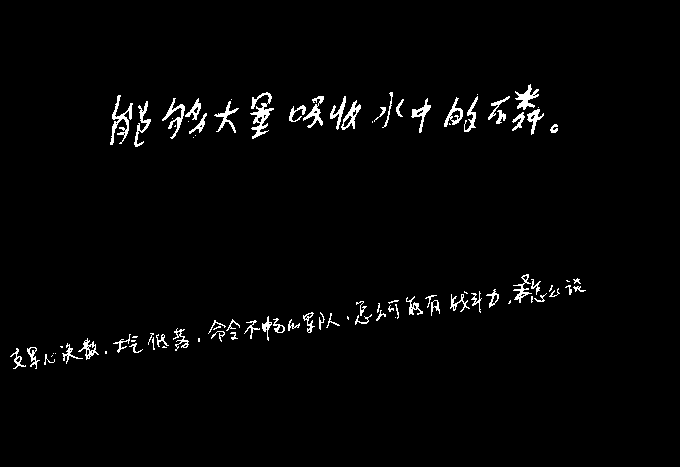 能够大量吸收水中的磷。
支军心涣散，士气低落，命令不畅的军队，怎么可能有战斗力，怎么说